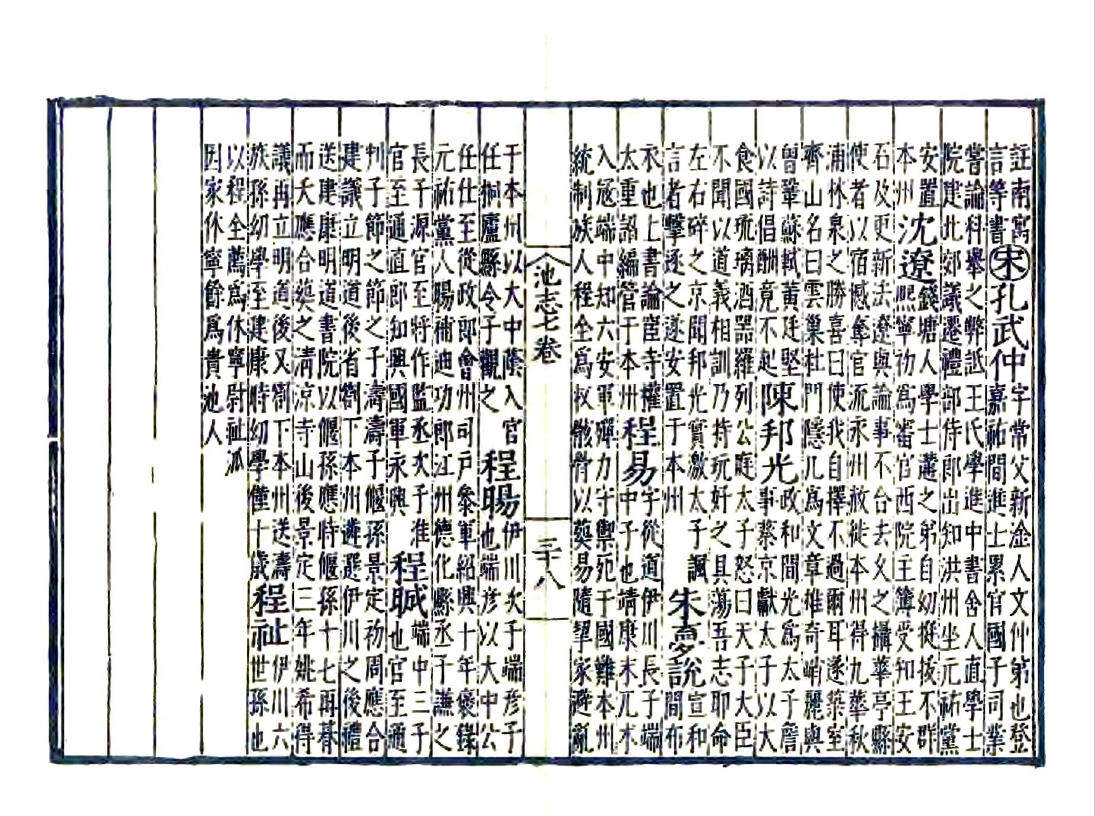 註南寫言等書宋孔武仲字常父新淦人文仲弟也登嘉祐間進士累官國子司業
嘗論科舉之弊詆王氏學進中書舍人直學士院建北郊議遷禮部侍郎出知洪州坐元祐黨
安置本州沈遼錢塘人學士遘之弟自幼挺拔不群熙寧初為審官西院主簿受知王安
石及更新法遼與論事不合去久之攝華亭縣使者以宿憾奪官流永州赦徙本州得九華秋
浦林泉之勝喜曰使我自擇不過爾耳遂築室齊山名曰雲巢杜門隱几為文章雄奇峭麗與
曾鞏蘇軾黃廷堅以詩倡酬竟不起陳邦光政和間光為太子詹事蔡京獻太子以大
食國琉璃酒器羅列公庭太子怒曰天子大臣不聞以道義相訓乃持玩好之具蕩吾志耶命
左右碎之京聞邦光實激太子諷言者擊逐之遂安置于本州朱夢說宣和間布
衣也上書論宦寺權太重詔編管于本州程易字從道伊川長子端中子也靖康末兀朮
入寇端中知六安軍殫力守禦死于國難本州統制族人程全為收骸骨以葬易隨挈家避亂
池志七卷
三十八
于本州以大中蔭入官任桐廬縣令子觀之程暘伊川次子端彥子也端彥以大中公
任仕至從政郎會州司戶參軍紹興十年褒錄元祐黨人暘補迪功郎江州德化縣丞子謙之
長千源官至將作監丞次子淮官至通直郎知興國軍永興程晠端中三子也官至通
判子節之節之子濤濤子偃孫景定初周應合建議立明道後省劄下本州遴選伊川之後禮
送建康明道書院以偃孫應時偃孫十七再朞而夭應合葬之清涼寺山後景定三年姚希得
議再立明道後又劄下本州送濤族孫幼學至建康時幼學僅十歲程祉伊川六世孫也
以程全薦為休寧尉祉派因家休寧餘為貴池人